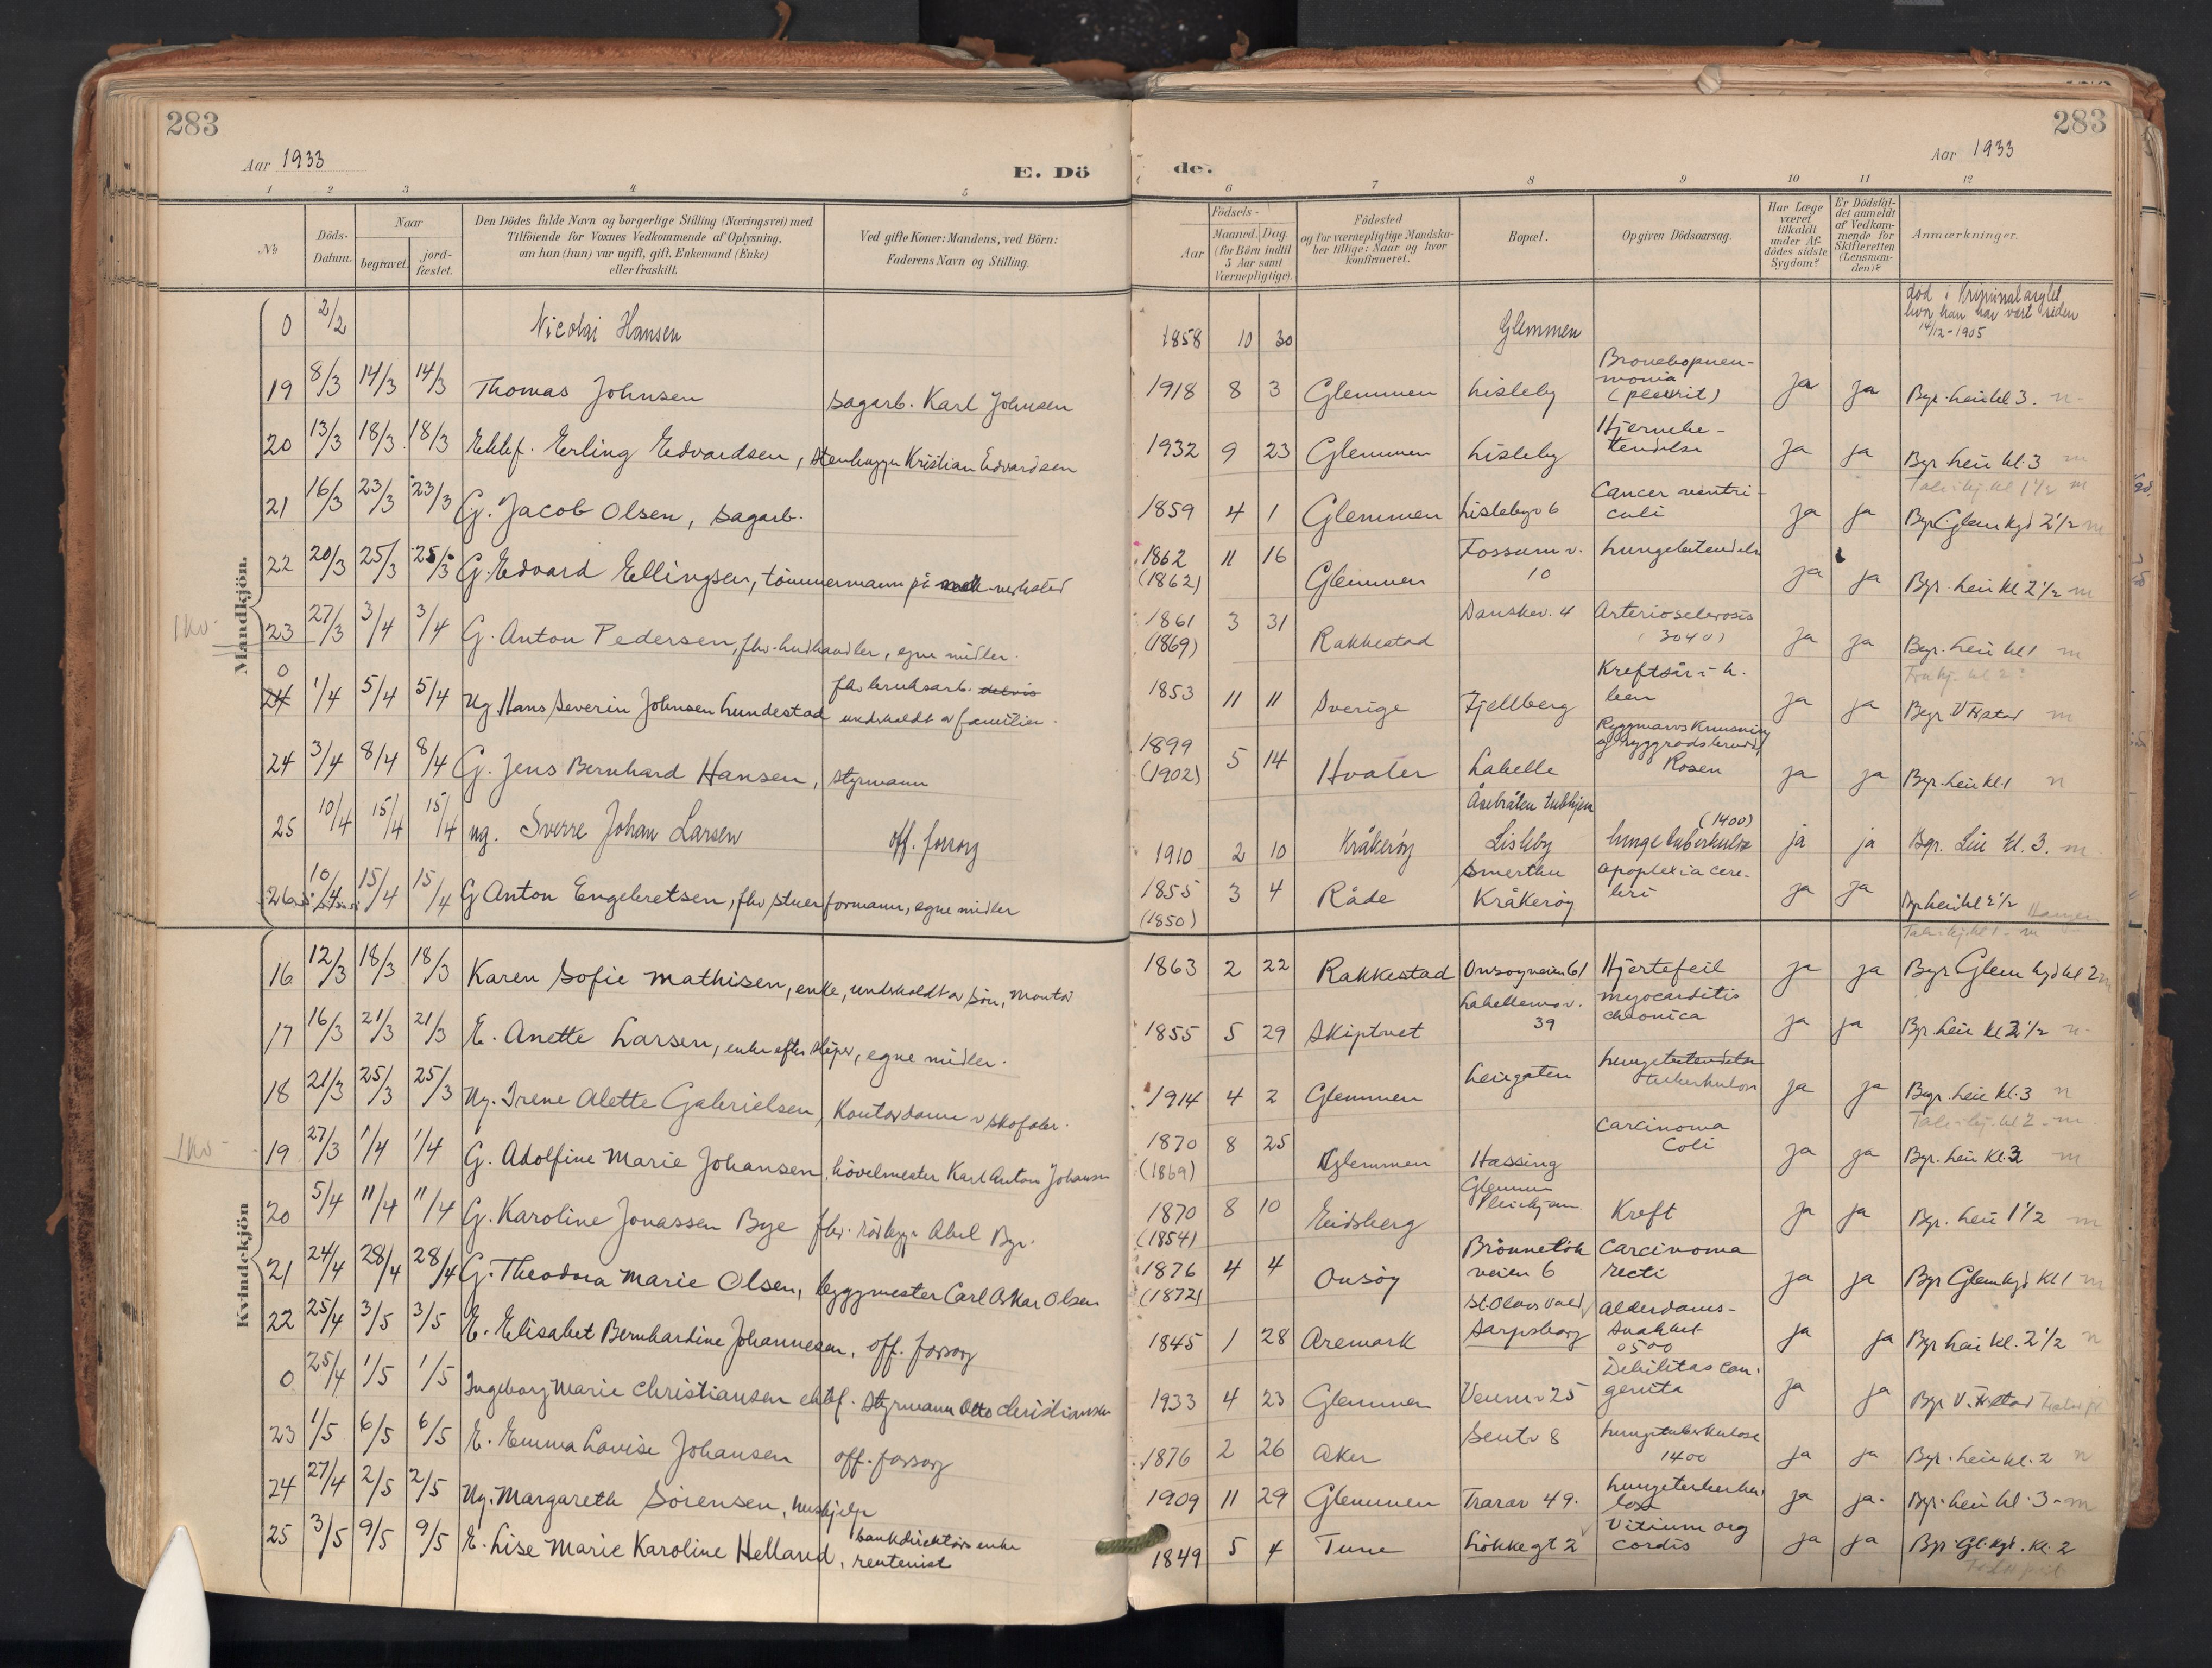 283
283
Aar 1933
E. Dö
de.
Aar 1933
1 2 3 4 5 6 7 8 9 10 11 12
No.
Döds-Datum.
Naar
begravet.
jord-fæstet.
Den Dödes fulde Navn og borgerlige Stilling (Næringsvei) med
Tilföiende for Voxnes Vedkommende af Oplysning,
om han (hun) var ugift, gift, Enkemand (Enke)
eller fraskilt.
Ved gifte Koner: Mandens, ved Börn:
Faderens Navn og Stilling.
Födsels-
Aar
Maaned. Dag.
(for Börn indtil
5 Aar samt
Værnepligtige).
Födested
og for værnepligtige Mandska-
ber tillige: Naar og hvor
konfirmeret.
Bopæl.
Opgiven Dödsaarsag.
Har Læge
været
tilkaldt
under Af-
dödes sidste
Sygdom?
Er Dödsfal-
det anmeldt
af Vedkom-
mende for
Skifteretten
(Lensman-
den)?
Anmærkninger.
Mandkjön.
0 2/2 Nicolai Hansen 1858 10 30 Glemmen död i Kriminalasylet hvor han har vært siden 14/12-1905
19 8/3 14/3 14/3 Thomas Johnsen sagarb. Karl Johnsen 1918 8 3 Glemmen Lisleby Bronchopneu-monia (pleurit) ja ja Bgr. Leie kl 3. n
20 13/3 18/3 18/3 Ektef. Erling Edvardsen, Stenhugger Kristian Edvardsen 1932 9 23 Glemmen Lisleby Hjernebe-tendelse ja ja Bgr. Leie kl. 3 m
21 16/3 23/3 23/3 G. Jacob Olsen, sagarb. 1859 4 1 Glemmen Lislebyv 6 Cancer ventri-culi ja ja Bgr. Glem kgd 2 1/2 m
22 20/3 25/3 25/3 G. Edvard Ellingsen, tömmermann på mek verksted 1862 (1862) 11 16 Glemmen Fossumv. 10 Lungebetendelse ja ja Bgr. Leie kl 2 1/2 m
1 kv.
23 27/3 3/4 3/4 G. Anton Pedersen, fhv. hudhandler, egne midler. 1861 (1869) 3 31 Rakkestad Danskev. 4 Arteriosclerosis (3040) ja ja Begr. Leie kl 1 m
0 24 1/4 5/4 5/4 Ug Hans Severin Johnsen Lundestad fhv bruksarb. delvis underholdt av familien. 1853 11 11 Sverige Fjellberg Kreftsår i h. ben ja ja Begr V Fr.stad m
24 3/4 8/4 8/4 G. Jens Bernhard Hansen, styrmann 1899 (1902) 5 14 Hvaler Labelle Ryggmarvsknusning og ryggradsbrudd Rosen ja ja Bgr. Leie kl. 1 n
25 10/4 15/4 15/4 ug. Sverre Johan Larsen off. forsorg 1910 2 10 Kråkeröy Åsebråten tubhjem Lisleby (1400) lungetuberkulose ja ja Bgr. Leie kl. 3. m
26 10/4 15/4 15/4 G Anton Engebretsen, fhv stuerformann, egne midler 1855 (1850) 3 4 Råde Smertu Kråkeröy apoplexia cere-bri ja ja Bgr Leie kl 2 1/2
Kvindekjön
16 12/3 18/3 18/3 Karen Sofie Mathisen, enke, underholdt av sön, montör 1863 2 22 Rakkestad Onsöyveien 61 Hjertefeil ja ja Bgr Glem kgd kl 2 m
17 16/3 21/3 21/3 E. Anette Larsen, enke efter sliper, egne midler. 1855 5 29 Skiptvet Labellemov. 39 myocarditis chronica ja ja Bgr. Leie kl 2 1/2 n
18 21/3 25/3 25/3 Ug. Irene Alette Gabrielsen, Kontordame v skofabr. 1914 4 2 Glemmen Leiegaten lungebetendelse tuberkulose ja ja Begr. Leie kl. 3 n
1 kv
19 27/3 1/4 1/4 G. Adolfine Marie Johansen, hövelmester Karl Anton Johansen 1870 (1869) 8 25 Glemmen Hassing Carcinoma Coli ja ja Bgr. Leie kl. 3 m
20 5/4 11/4 11/4 G. Karoline Jonassen Bye fhv. rörlegger Abel Bye. 1870 (1854) 8 10 Eidsberg Glemmen Pleiehjem Kreft ja ja Bgr. Leie 1 1/2 m
21 24/4 28/4 28/4 G. Theodora Marie Olsen, byggmester Carl Oskar Olsen 1876 (1872) 4 4 Onsöy Brönnelök veien 6 Carcinoma recti ja ja Bgr Glem kgd kl 1 m
22 25/4 3/5 3/5 E. Elisabet Bernhardine Johannesen, off. forsorg 1845 1 28 Aremark St. Olavs vold Sarpsborg Alderdoms-svakket 0500 ja ja Bgr Leie kl. 2 1/2 n
0 25/4 1/5 1/5 Ingeborg Marie Christiansen ektef. Styrmann Otto Christiansen 1933 4 23 Glemmen Veumv 25 Debilitas con-genita ja ja Bgr V. Fr.stad
23 1/5 6/5 6/5 E. Emma Lovise Johansen off. forsorg 1876 2 26 Aker Sentv 8 Lungetuberkulose 1400 ja ja Bgr. Leie kl. 2 n
24 27/4 2/5 2/5 Ug. Margareth Sörensen, huskjelp 1909 11 29 Glemmen Trarav 49. Lungetuberku-lose ja ja. Bgr. Leie kl. 3 m
25 3/5 9/5 9/5 E. Lise Marie Karoline Helland, bankdirektörs enke rentenist 1849 5 4 Tune Lökkegt 2 Vitium org cordis ja ja Bgr. Gl. kgd. kl. 2